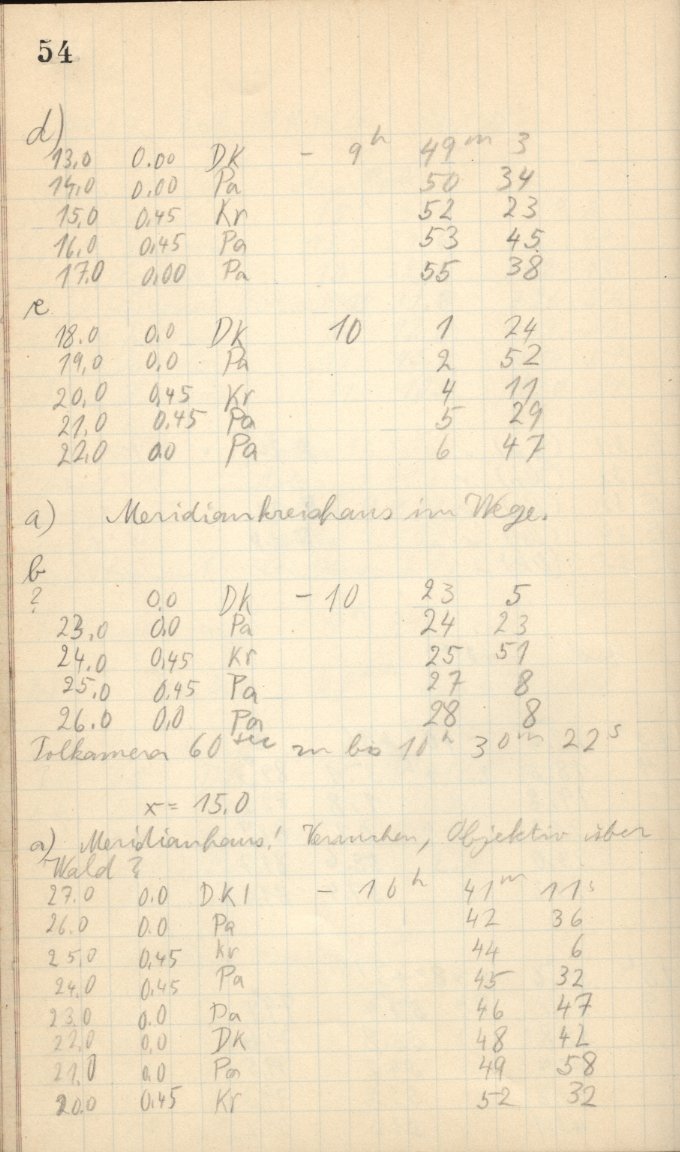 54
d)
13,0 0.00 DK - 9h 49m 3
14,0 0,00 Pa 50 34
15,0 0,45 Kr 52 23
16,0 0,45 Pa 53 45
17,0 0,00 Pa 55 38
e
18.0 0,0 DK 10 1 24
19,0 0,0 Pa 2 52
20,0 0,45 Kr 4 11
21,0 0,45 Pa 5 29
22,0 0,0 Pa 6 47
a) Meridiankreishaus im Wege.
b
? 0,0 DK - 10 23 5
23,0 0,0 Pa 24 23
24,0 0,45 Kr 25 51
25,0 0,45 Pa 27 8
26.0 0,0 Pa 28 8
60 sec zu bis 10h 30m 22s
x = 15,0
a) Meridianhaus! Versuchen, Objektiv über
Wald ?
27.0 0.0 DK - 10h 41m 11s
26.0 0.0 Pa 42 36
25,0 0,45 Kr 44 6
24,0 0,45 Pa 45 32
23,0 0,0 Pa 46 47
22,0 0,0 DK 48 42
21,0 0,0 Pa 49 58
20.0 0,45 Kr 52 32